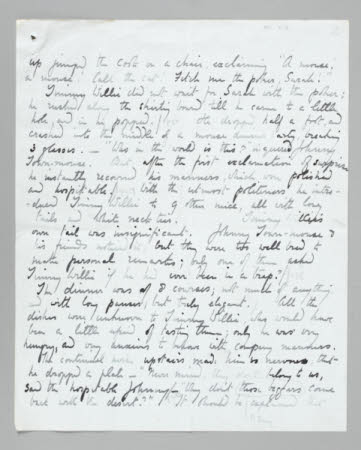 up jumped the Cook on a chair, exclaiming "A mouse,
a mouse! Call the cat! Fetch me the poker, Sarah!"
Timmy Willie did not wait for Sarah with the poker;
he rushed along the skirting board till he came to a little
hole, and in he popped. He dropped half a foot, and
crashed into the middle of a mouse dinner party, breaking
3 glasses. — "Who in the world is this?" inquired Johnny
Town-mouse. But after the first exclamation of surprise
he instantly recovered his manners, which were polished
and hospitable. With the utmost politeness he intro-
duced Timmy Willie to 9 other mice, all with long
tails and white neckties. Timmy Willie's
own tail was insignificant. Johnny Town-mouse &
his friends noticed it; but they were too well bred to
make personal remarks; only one of them asked
Timmy Willie if he had ever been in a trap?
The dinner was of 8 courses; not much of anything
and with long pauses, but truly elegant. All the
dishes were unknown to Timmy Willie, who would have
been a little afraid of tasting them; only he was very
hungry, and very anxious to behave with company manners.
The continual noise upstairs made him so nervous, that
he dropped a plate — "Never mind, they don't belong to us,"
said the hospitable Johnny "Why don't those beggars come
back with the desert?" It should be explained that